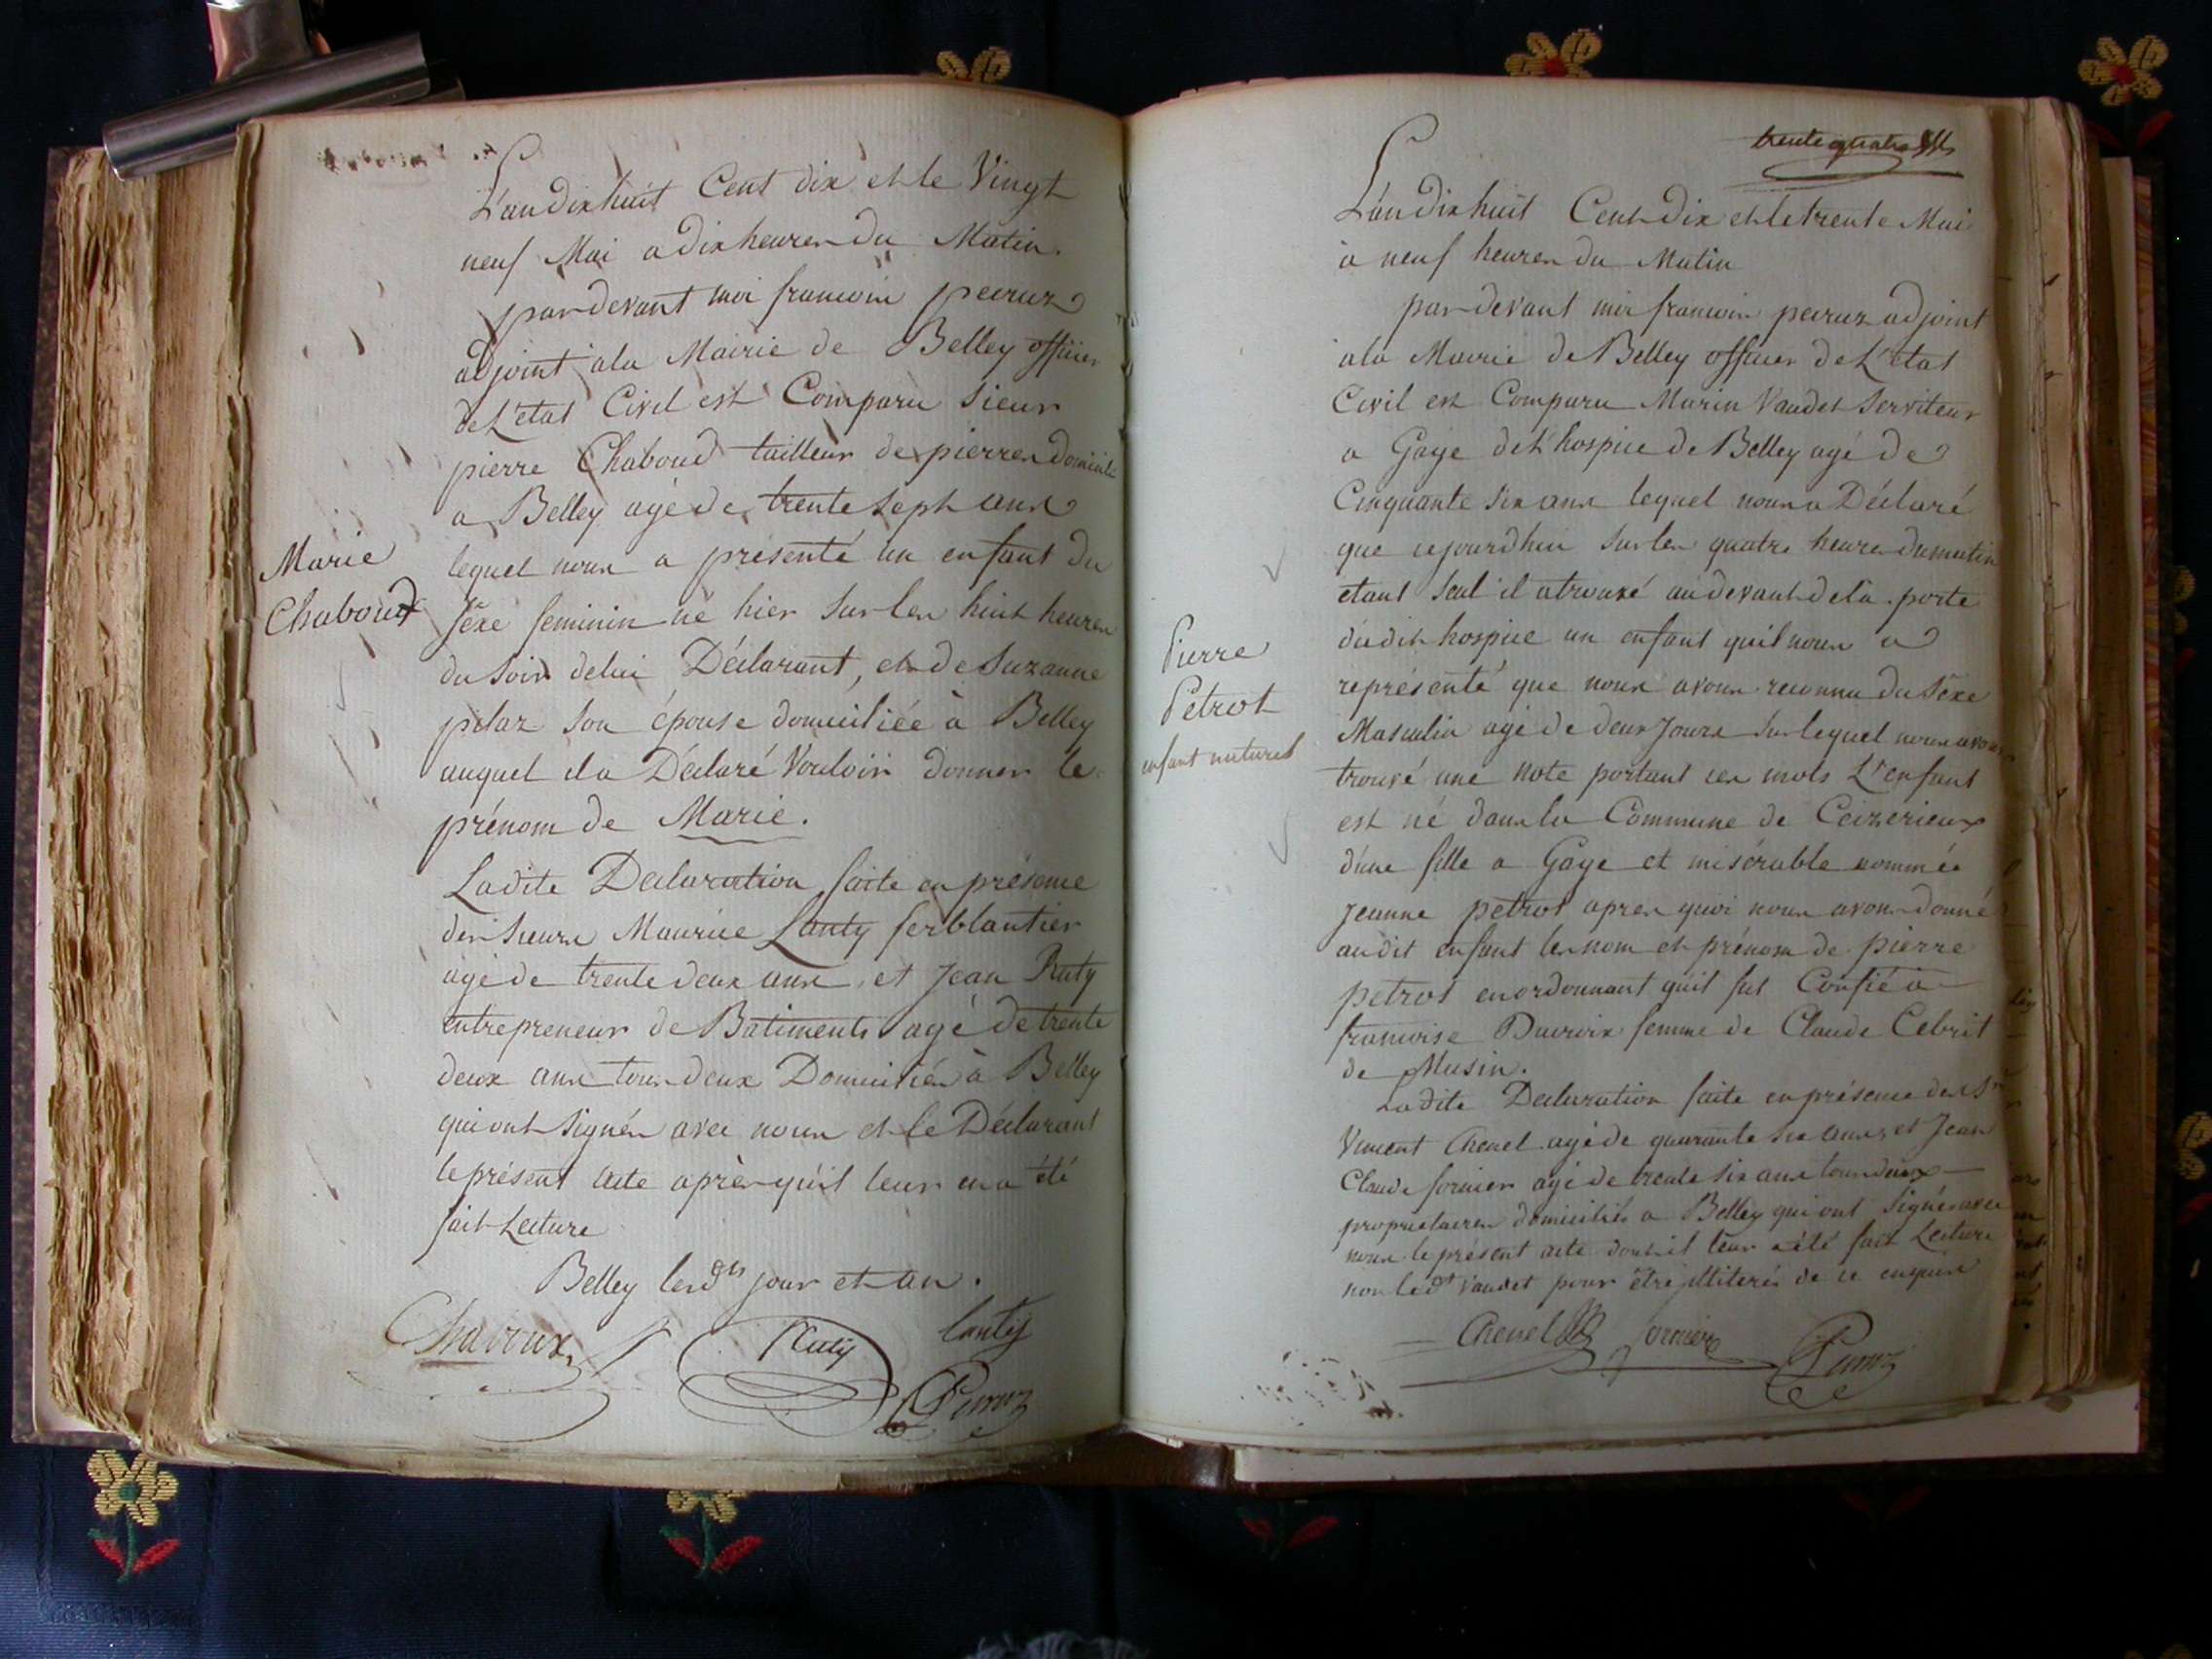 L'an dix huit Cent dix et le Vingt
neuf Mai a dix heures du Matin.
pardevant moi francois peiruz
adjoint a la Mairie de Belley officier
de L'etat Civil est Comparu Sieur
pierre Chaboud tailleur de pierres domicilié
a Belley agé de trente sept ans
lequel nous a présenté un enfant du
Marie
Chaboud
séxe feminin né hier sur les huit heures
du Soir de lui Déclarant, et de Suzanne
pelaz son épouse domiciliée à Belley
auquel il a Déclaré Vouloir donner le
prénom de Marie.
Ladite Declaration faite en présence
des Sieurs Maurice Lanty ferblantier
agé de trente deux ans, et Jean Ruty
entrepreneur de Batiments agé de trente
deux ans tous deux Domiciliés à Belley
qui ont signés avec nous et le Déclarant
le présent acte après qu'il leur en a été
fait Lecture
Belley lesdts jour et an.
Chaboux
Ruty
Lanty
Peiruz
trente quatre
L'an dix huit Cent Dix et le trente Mai
à neuf heures du Matin
pardevant moi francois peiruz adjoint
a la Mairie de Belley officier de L'etat
Civil est Comparu Marin Vaudet Serviteur
a Gage de L'hospice de Belley agé de
Cinquante six ans lequel nous a Déclaré
que cejourdhui sur les quatre heures du matin
etant seul il a trouvé au devant de la porte
dudit hospice un enfant quil nous a
Pierre
Petrot
enfant naturel
représenté que nous avons reconnu du séxe
Masculin agé de deux Jours sur lequel nous avons
trouvé une note portant ces mots L'enfant
est né dans la Commune de Ceizerieux
d'une fille a Gage et misérable nommée
Jeanne petrot apres quoi nous avons donné
au dit enfant les nom et prénom de pierre
petrot en ordonnant qu'il fut Confié à
francoise Ducroix femme de Claude Cebrit
de Musin.
Ladite Declaration faite en présence des Srs
Vincent Chenel agé de quarante six ans, et Jean
Claude fornier agé de trente six ans tous deux
proprietaires domiciliés a Belley qui ont signés avec
nous le présent acte dont il leur a été fait Lecture
non ledt Vaudet pour être illiteré de ce enquis
Chenel fornier Peiruz